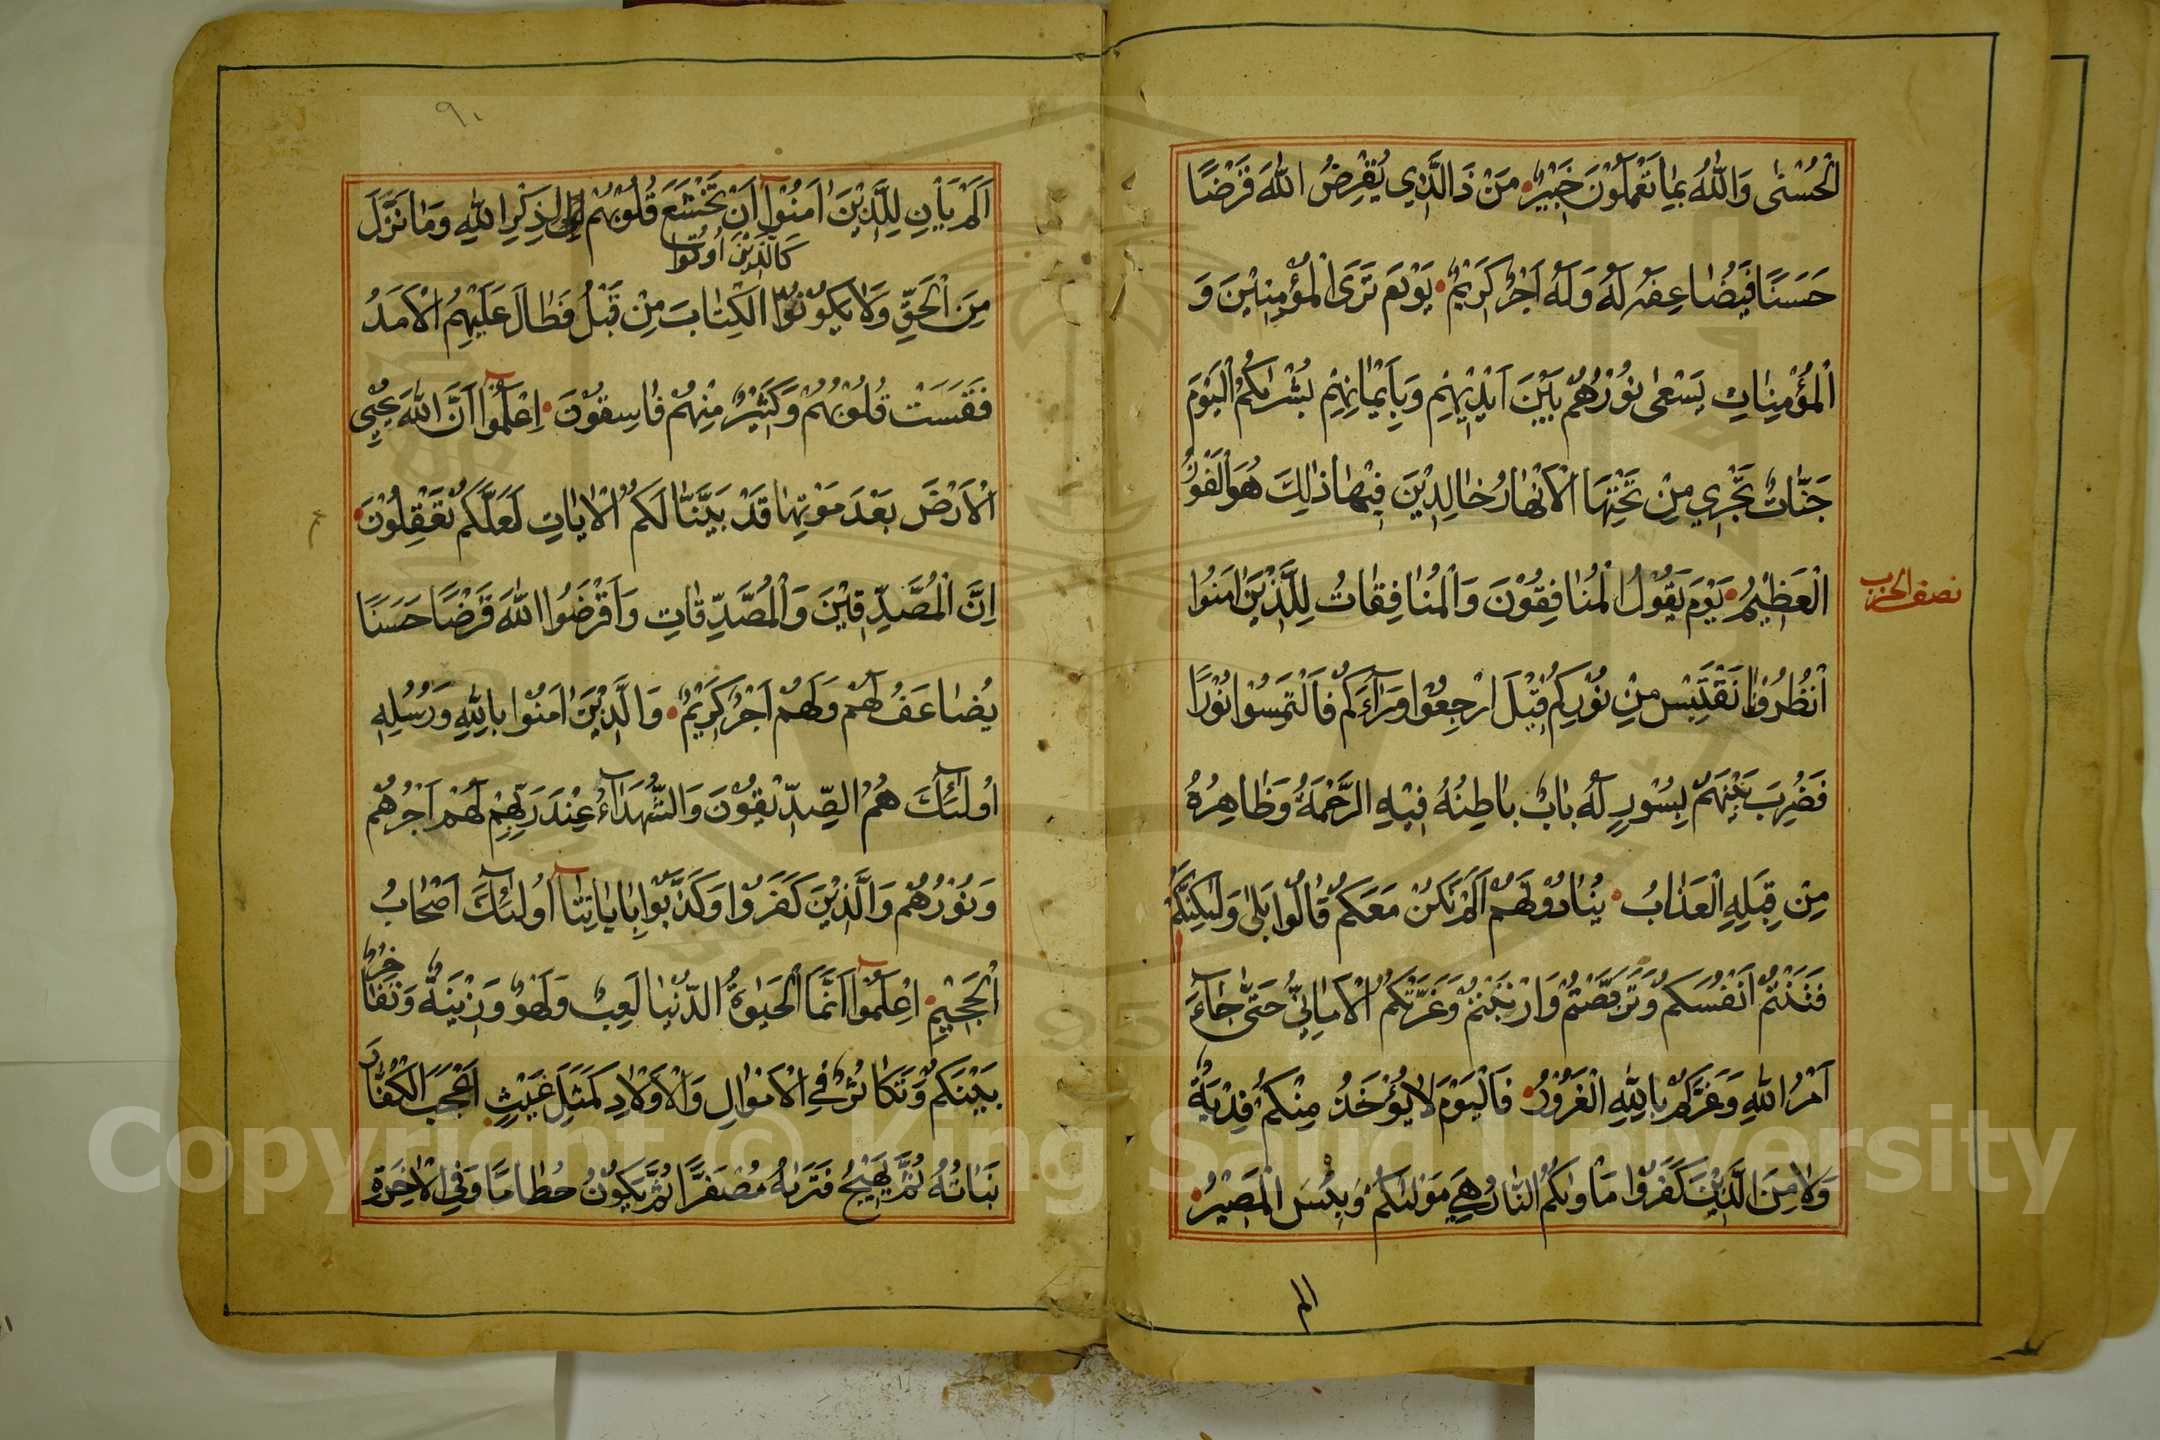 اَلْحُسْنٰى وَاللّٰهُ بِمَا تَعْمَلُوْنَ خَبِيْرٌ مَنْ ذَا الَّذِي يُقْرِضُ اللّٰهَ قَرْضًا
حَسَنًا فَيُضَاعِفَهُ لَهُ وَلَهُ اَجْرٌ كَرِيْمٌ يَوْمَ تَرَى الْمُؤْمِنِيْنَ وَ
الْمُؤْمِنَاتِ يَسْعٰى نُوْرُهُمْ بَيْنَ اَيْدِيْهِمْ وَبِاَيْمَانِهِمْ بُشْرٰىكُمُ الْيَوْمَ
جَنَّاتٌ تَجْرِي مِنْ تَحْتِهَا الْاَنْهَارُ خَالِدِيْنَ فِيْهَا ذٰلِكَ هُوَ الْفَوْزُ
الْعَظِيْمُ يَوْمَ يَقُوْلُ الْمُنَافِقُوْنَ وَالْمُنَافِقَاتُ لِلَّذِيْنَ اٰمَنُوا
نصف الحزب
انْظُرُوْنَا نَقْتَبِسْ مِنْ نُوْرِكُمْ قِيْلَ ارْجِعُوْا وَرَآءَكُمْ فَالْتَمِسُوْا نُوْرًا
فَضُرِبَ بَيْنَهُمْ بِسُوْرٍ لَهُ بَابٌ بَاطِنُهُ فِيْهِ الرَّحْمَةُ وَظَاهِرُهُ
مِنْ قِبَلِهِ الْعَذَابُ يُنَادُوْنَهُمْ اَلَمْ نَكُنْ مَعَكُمْ قَالُوْا بَلٰى وَلٰكِنَّكُمْ
فَتَنْتُمْ اَنْفُسَكُمْ وَتَرَبَّصْتُمْ وَارْتَبْتُمْ وَغَرَّتْكُمُ الْاَمَانِيُّ حَتّٰى جَآءَ
اَمْرُ اللّٰهِ وَغَرَّكُمْ بِاللّٰهِ الْغَرُوْرُ فَالْيَوْمَ لَا يُؤْخَذُ مِنْكُمْ فِدْيَةٌ
وَلَا مِنَ الَّذِيْنَ كَفَرُوْا مَاْوٰىكُمُ النَّارُ هِيَ مَوْلٰىكُمْ وَبِئْسَ الْمَصِيْرُ
الم
٩١
اَلَمْ يَاْنِ لِلَّذِيْنَ اٰمَنُوْآ اَنْ تَخْشَعَ قُلُوْبُهُمْ لِذِكْرِ اللّٰهِ وَمَا نَزَلَ
كَالَّذِيْنَ اُوتُوا
مِنَ الْحَقِّ وَلَا يَكُوْنُوْا الْكِتَابَ مِنْ قَبْلُ فَطَالَ عَلَيْهِمُ الْاَمَدُ
فَقَسَتْ قُلُوْبُهُمْ وَكَثِيْرٌ مِنْهُمْ فَاسِقُوْنَ اِعْلَمُوْآ اَنَّ اللّٰهَ يُحْيِي
الْاَرْضَ بَعْدَ مَوْتِهَا قَدْ بَيَّنَّا لَكُمُ الْاٰيَاتِ لَعَلَّكُمْ تَعْقِلُوْنَ
اِنَّ الْمُصَّدِّقِيْنَ وَالْمُصَّدِّقَاتِ وَاَقْرَضُوا اللّٰهَ قَرْضًا حَسَنًا
يُضَاعَفُ لَهُمْ وَلَهُمْ اَجْرٌ كَرِيْمٌ وَالَّذِيْنَ اٰمَنُوْا بِاللّٰهِ وَرُسُلِهِ
اُولٰٓئِكَ هُمُ الصِّدِّيْقُوْنَ وَالشُّهَدَآءُ عِنْدَ رَبِّهِمْ لَهُمْ اَجْرُهُمْ
وَنُوْرُهُمْ وَالَّذِيْنَ كَفَرُوْا وَكَذَّبُوْا بِاٰيَاتِنَآ اُولٰٓئِكَ اَصْحَابُ
الْجَحِيْمِ اِعْلَمُوْآ اَنَّمَا الْحَيٰوةُ الدُّنْيَا لَعِبٌ وَلَهْوٌ وَزِيْنَةٌ وَتَفَاخُرٌ
بَيْنَكُمْ وَتَكَاثُرٌ فِي الْاَمْوَالِ وَالْاَوْلَادِ كَمَثَلِ غَيْثٍ اَعْجَبَ الْكُفَّارَ
نَبَاتُهُ ثُمَّ يَهِيْجُ فَتَرٰىهُ مُصْفَرًّا ثُمَّ يَكُوْنُ حُطَامًا وَفِي الْاٰخِرَةِ
Copyright © King Saud University